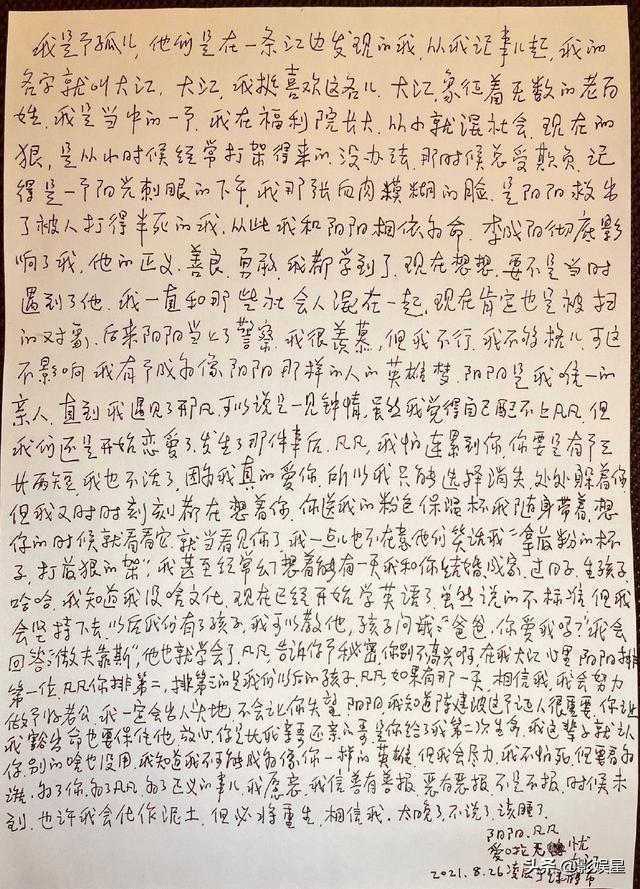 我是个孤儿, 他们是在一条江边发现的我, 从我记事儿起, 我的
名字就叫大江, 大江, 我挺喜欢这名儿, 大江, 象征着无数的老百
姓, 我是当中的一个, 我在福利院长大, 从小就混社会, 现在的
狠, 是从小时候经常打架得来的, 没办法, 那时候总受欺负, 记
得是一个阳光刺眼的下午, 我那张血肉模糊的脸, 是阳阳救出
了被人打得半死的我, 从此我和阳阳相依为命, 李成阳彻底影
响了我, 他的正义, 善良, 勇敢, 我都学到了, 现在想想, 要不是当时
遇到了他, 我一直和那些社会人混在一起, 现在肯定也是被扫
的对象, 后来阳阳当上了警察, 我很羡慕, 但我不行, 我不够格儿, 可这
不影响我有个成为像阳阳那样的人的英雄梦, 阳阳是我唯一的
亲人, 直到我遇见了邢凡, 可以说是一见钟情, 虽然我觉得自己配不上凡凡, 但
我们还是开始恋爱了, 发生了那件事后, 凡凡, 我怕连累到你, 你要是有个三
长两短, 我也不活了, 因为我真的爱你, 所以我只能选择消失, 处处躲着你,
但我又时时刻刻都在想着你, 你送我的粉色保温杯我随身带着, 想
你的时候就看看它, 就当看见你了, 我一点儿也不在意他们笑话我"拿最粉的杯
子, 打最狠的架", 我甚至经常幻想着能够有一天我和你结婚, 成家, 过日子, 生孩子
哈哈, 我知道我没啥文化, 现在已经开始学英语了, 虽然说的不标准, 但我
会坚持下去, 以后我们有了孩子, 我可以教他, 孩子问我:"爸爸, 你爱我吗?"我会
回答:"做夫靠斯", 他也就学会了, 凡凡, 告诉你个秘密, 你别不高兴啊, 在我大江心里, 阳阳排
第一位, 凡凡你排第二, 排第三的是我们以后的孩子, 凡凡, 如果有那一天, 相信我, 我会努力
做个好老公, 我一定会出人头地, 不会让你失望, 阳阳, 我知道陈建波这个证人很重要, 你让
我豁出命也要保住他, 放心, 你是比我亲哥还亲的哥, 是你给了我第二次生命, 我这辈子就认
你, 别的啥也没用, 我知道我不可能成为像你一样的英雄, 但我会尽力, 我不怕死, 但要看为
谁, 为了你, 为了凡凡, 为了正义的事儿, 我愿意, 我信善有善报, 恶有恶报, 不是不报, 时候未
到, 也许我会化作泥土, 但必将重生, 相信我, 太晚了, 不说了, 该睡了.
阳阳, 凡凡
爱 无 忧
2021.8.26凌
头条 @影娱星